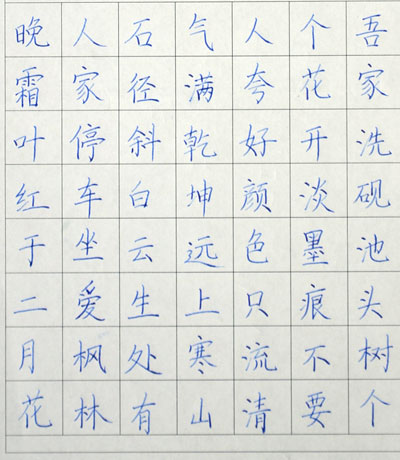 吾家洗砚池头树个
个花开淡墨痕不要
人夸好颜色只流清
气满乾坤远上寒山
石径斜白云生处有
人家停车坐爱枫林
晚霜叶红于二月花